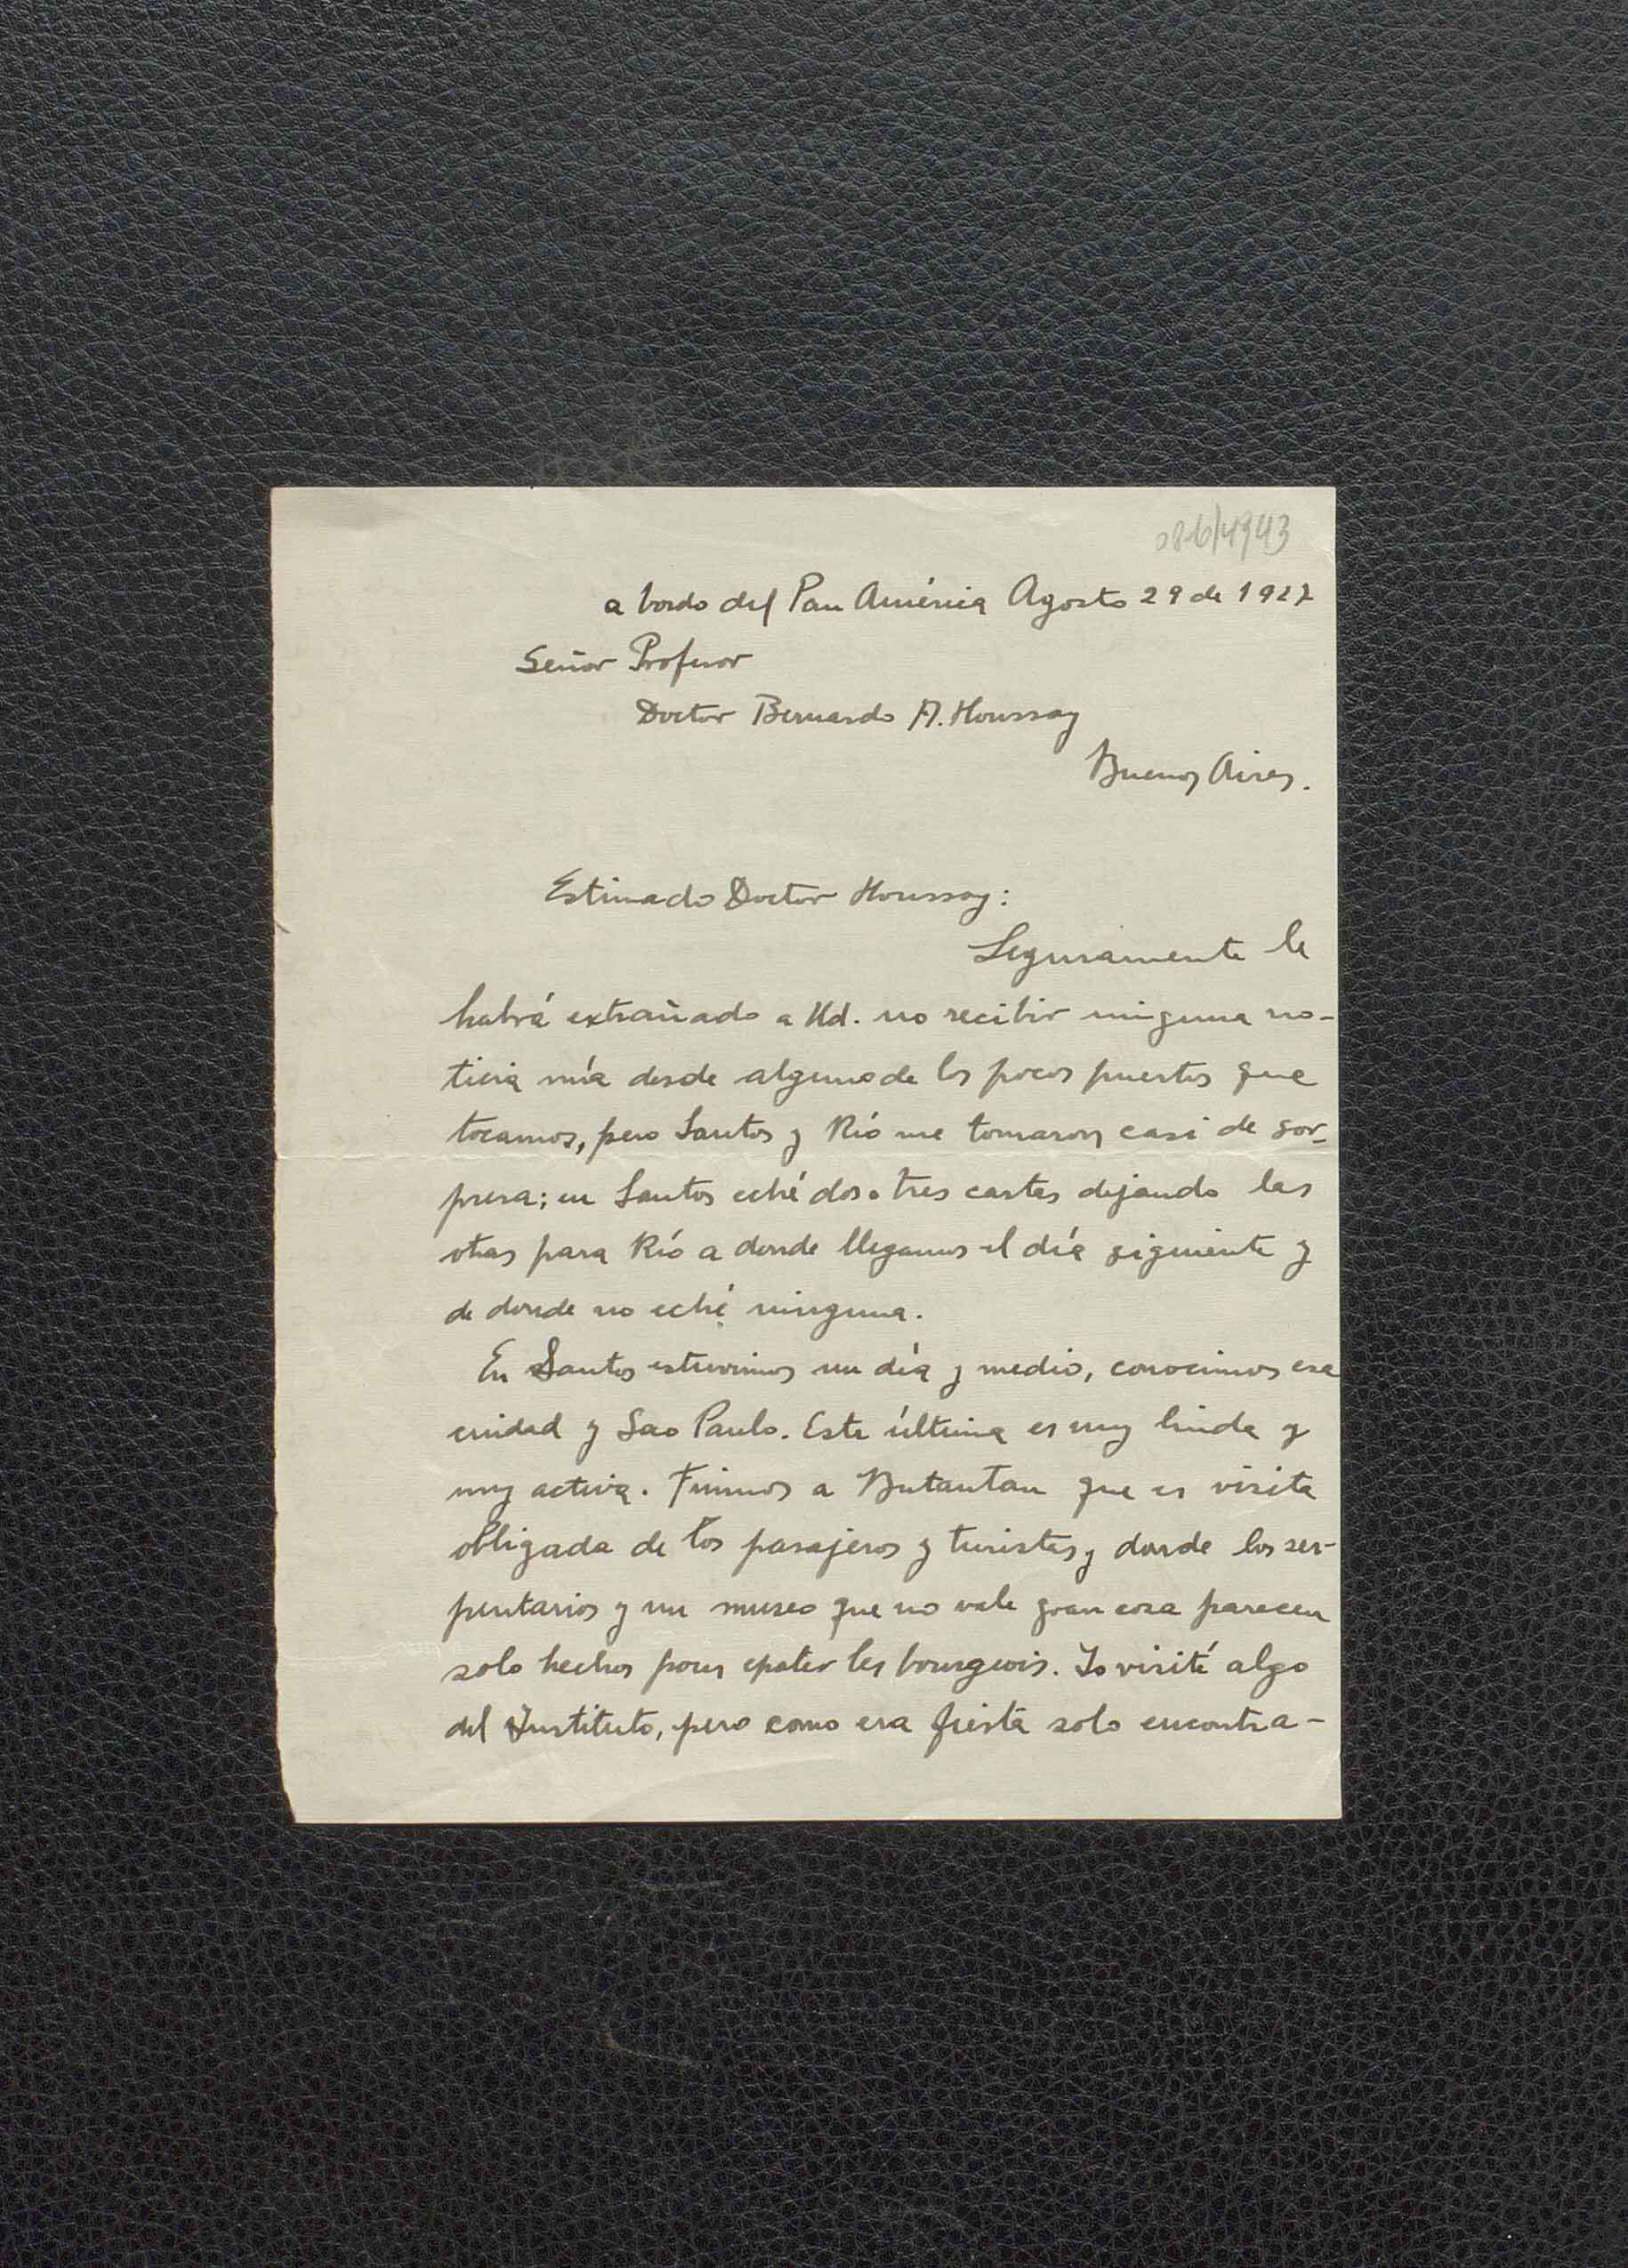 086/4943
a bordo del Pan América Agosto 29 de 1927
Señor Profesor
Doctor Bernardo A. Houssay
Buenos Aires.
Estimado Doctor Houssay:
Seguramente le
habrá extrañado a Ud. no recibir ninguna no-
ticia mía desde alguno de los pocos puertos que
tocamos, pero Santos y Río me tomaron casi de sor-
presa; en Santos eché dos o tres cartas dejando las
otras para Río a donde llegamos el día siguiente y
de donde no eché ninguna.
En Santos estuvimos un día y medio, conocimos esa
ciudad y Sao Paulo. Esta última es muy linda y
muy activa. Fuimos a Butantan que es visita
obligada de los pasajeros y turistas y donde los ser-
pentarios y un museo que no vale gran cosa parecen
solo hechos pour epater les bourgeois. Yo visité algo
del Instituto, pero como era fiesta solo encontra-